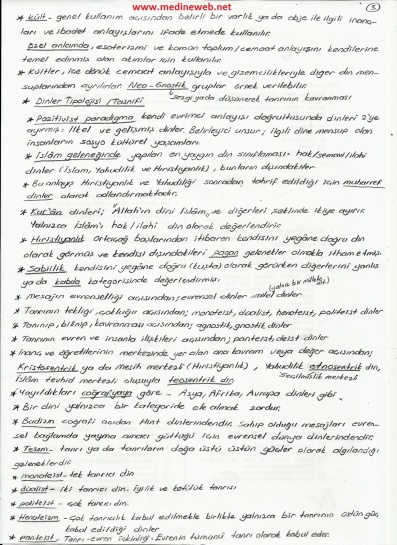 www.medineweb.net
3
* kült - genel kullanım açısından belirli bir varlık ya da obje ile ilgili inanç-
ları ve ibadet anlayışlarını ifade etmede kullanılır.
Özel anlamda, esoterizmi ve kapan toplum/cemaat anlayışını kendilerine
temel edinmiş olan akımlar için kullanılır.
* Kültler, içe dönük cemaat anlayışıyla ve gizemcilikleriyle diğer din men-
suplarından ayrılırlar. Neo-Gnostik gruplar örnek verilebilir.
Sezgi ya da düşünerek tanrının kavranması
* Dinler Tipolojisi/Tasnifi
* Pozitivist paradigma kendi evrimci anlayışı doğrultusunda dinleri 2'ye
ayırmış: İlkel ve gelişmiş dinler. Belirleyici unsur; ilgili dine mensup olan
insanların sosyo kültürel yaşamları.
* İslâm geleneğinde yapılan en yaygın din sınıflaması: hak/semavi/ilahi
dinler (İslam, Yahudilik ve Hıristiyanlık), bunların dışındakiler
* Bu anlayış Hıristiyanlık ve Yahudiliği sonradan tahrif edildiği için muharref
dinler olarak adlandırmaktadır.
* Kur'ân dinleri; "Allah'ın dini İslâm" ve diğerleri şeklinde ikiye ayırır.
Yalnızca İslâm'ı hak/ilahi din olarak değerlendirir.
* Hıristiyanlık Ortaçağ başlarından itibaren kendisini yegâne doğru din
olarak görmüş ve kendisi dışındakileri pagan gelenekler olmakla itham etmiş.
* Sabiilik kendisini yegâne doğru (kuşta) olarak görürken diğerlerini yanlış
ya da kabda kategorisinde değerlendirmiş.
(yalnız bir millete)
* Mesajın evrenselliği açısından; evrensel dinler - milel dinler
* Tanrının tekliği, çokluğu açısından; monoteist, dualist, henoteist, politeist dinler
* Tanınıp, bilinip, kavranması açısından; agnostik, gnostik dinler
* Tanrının evren ve insanla ilişkileri açısından; panteist, deist dinler
* İnanç ve öğretilerinin merkezinde yer alan ana kavram veya değer açısından;
Kristosentrik ya da mesih merkezli (Hıristiyanlık), Yahudilik etnosentrik din,
Seçilmişlik merkezli
İslâm tevhid merkezli oluşuyla teosentrik din
* Yayıldıkları coğrafyaya göre - Asya, Afrika, Avrupa dinleri gibi.
* Bir dini yalnızca bir kategoride ele almak zordur.
* Budizm coğrafi açıdan Hint dinlerindendir. Sahip olduğu mesajları evren-
sel bağlamda yayma amacı güttüğü için evrensel dünya dinlerindendir.
* Teizm - tanrı ya da tanrıların doğa üstü üstün güçler olarak algılandığı
geleneklerdir.
* monoteist - tek tanrıcı din
* dualist - iki tanrıcı din. İyilik ve kötülük tanrısı
* politeist - çok tanrıcı din.
* Henoteizm - Çok tanrıcılık kabul edilmekle birlikte yalnızca bir tanrının üstün güç
kabul edildiği dinler
* panteist - Tanrı-evren içkinliği. Evrenin tümünü tanrı olarak kabul eder.